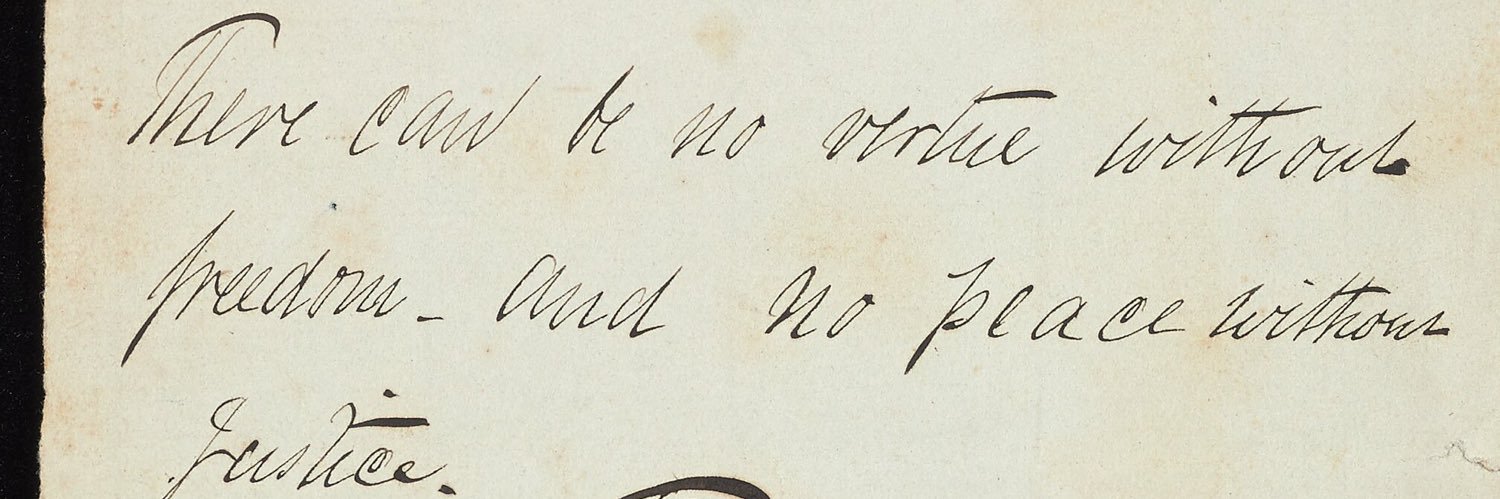 There can be no vertue without
freedom - and no peace without
Justice.